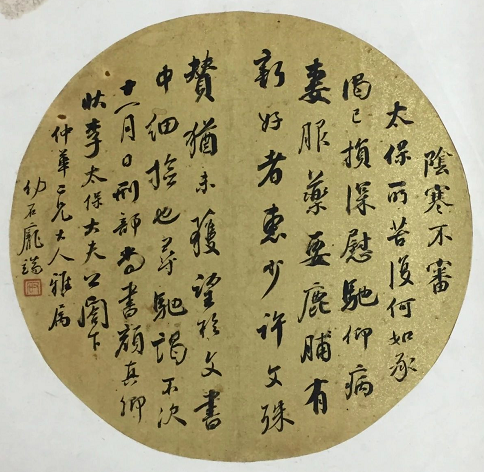 陰寒不審
太保所苦復何如承
渴已損深慰馳仰病
妻服藥要鹿脯有
新好者惠少許文殊
贊猶未獲望於文書
中細捡也尋馳謁不次
十一月日刑部尚書顔真卿
狀李太保大夫公閤下
仲華二兄大人雅屬
幼石龐端